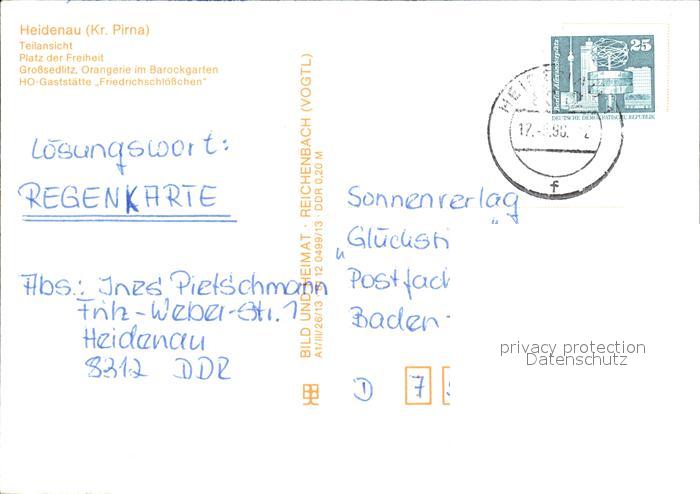 Heidenau (Kr. Pirna)
Teilansicht
Platz der Freiheit
Großsedlitz, Orangerie im Barockgarten
HO-Gaststätte „Friedrichschlößchen"
Lösungswort:
REGENKARTE
Abs.: Ines Pietschmann
Fritz-Weber-Str. 1
Heidenau
8312 DDR
BILD UND HEIMAT · REICHENBACH (VOGTL)
A1/III/26/13 12 0499/13 · DDR 0,20 M
Berlin Alexanderplatz
25
DEUTSCHE DEMOKRATISCHE REPUBLIK
f
Sonnenverlag
„Glücksti
Postfach
Baden-
D 7
privacy protection
Datenschutz